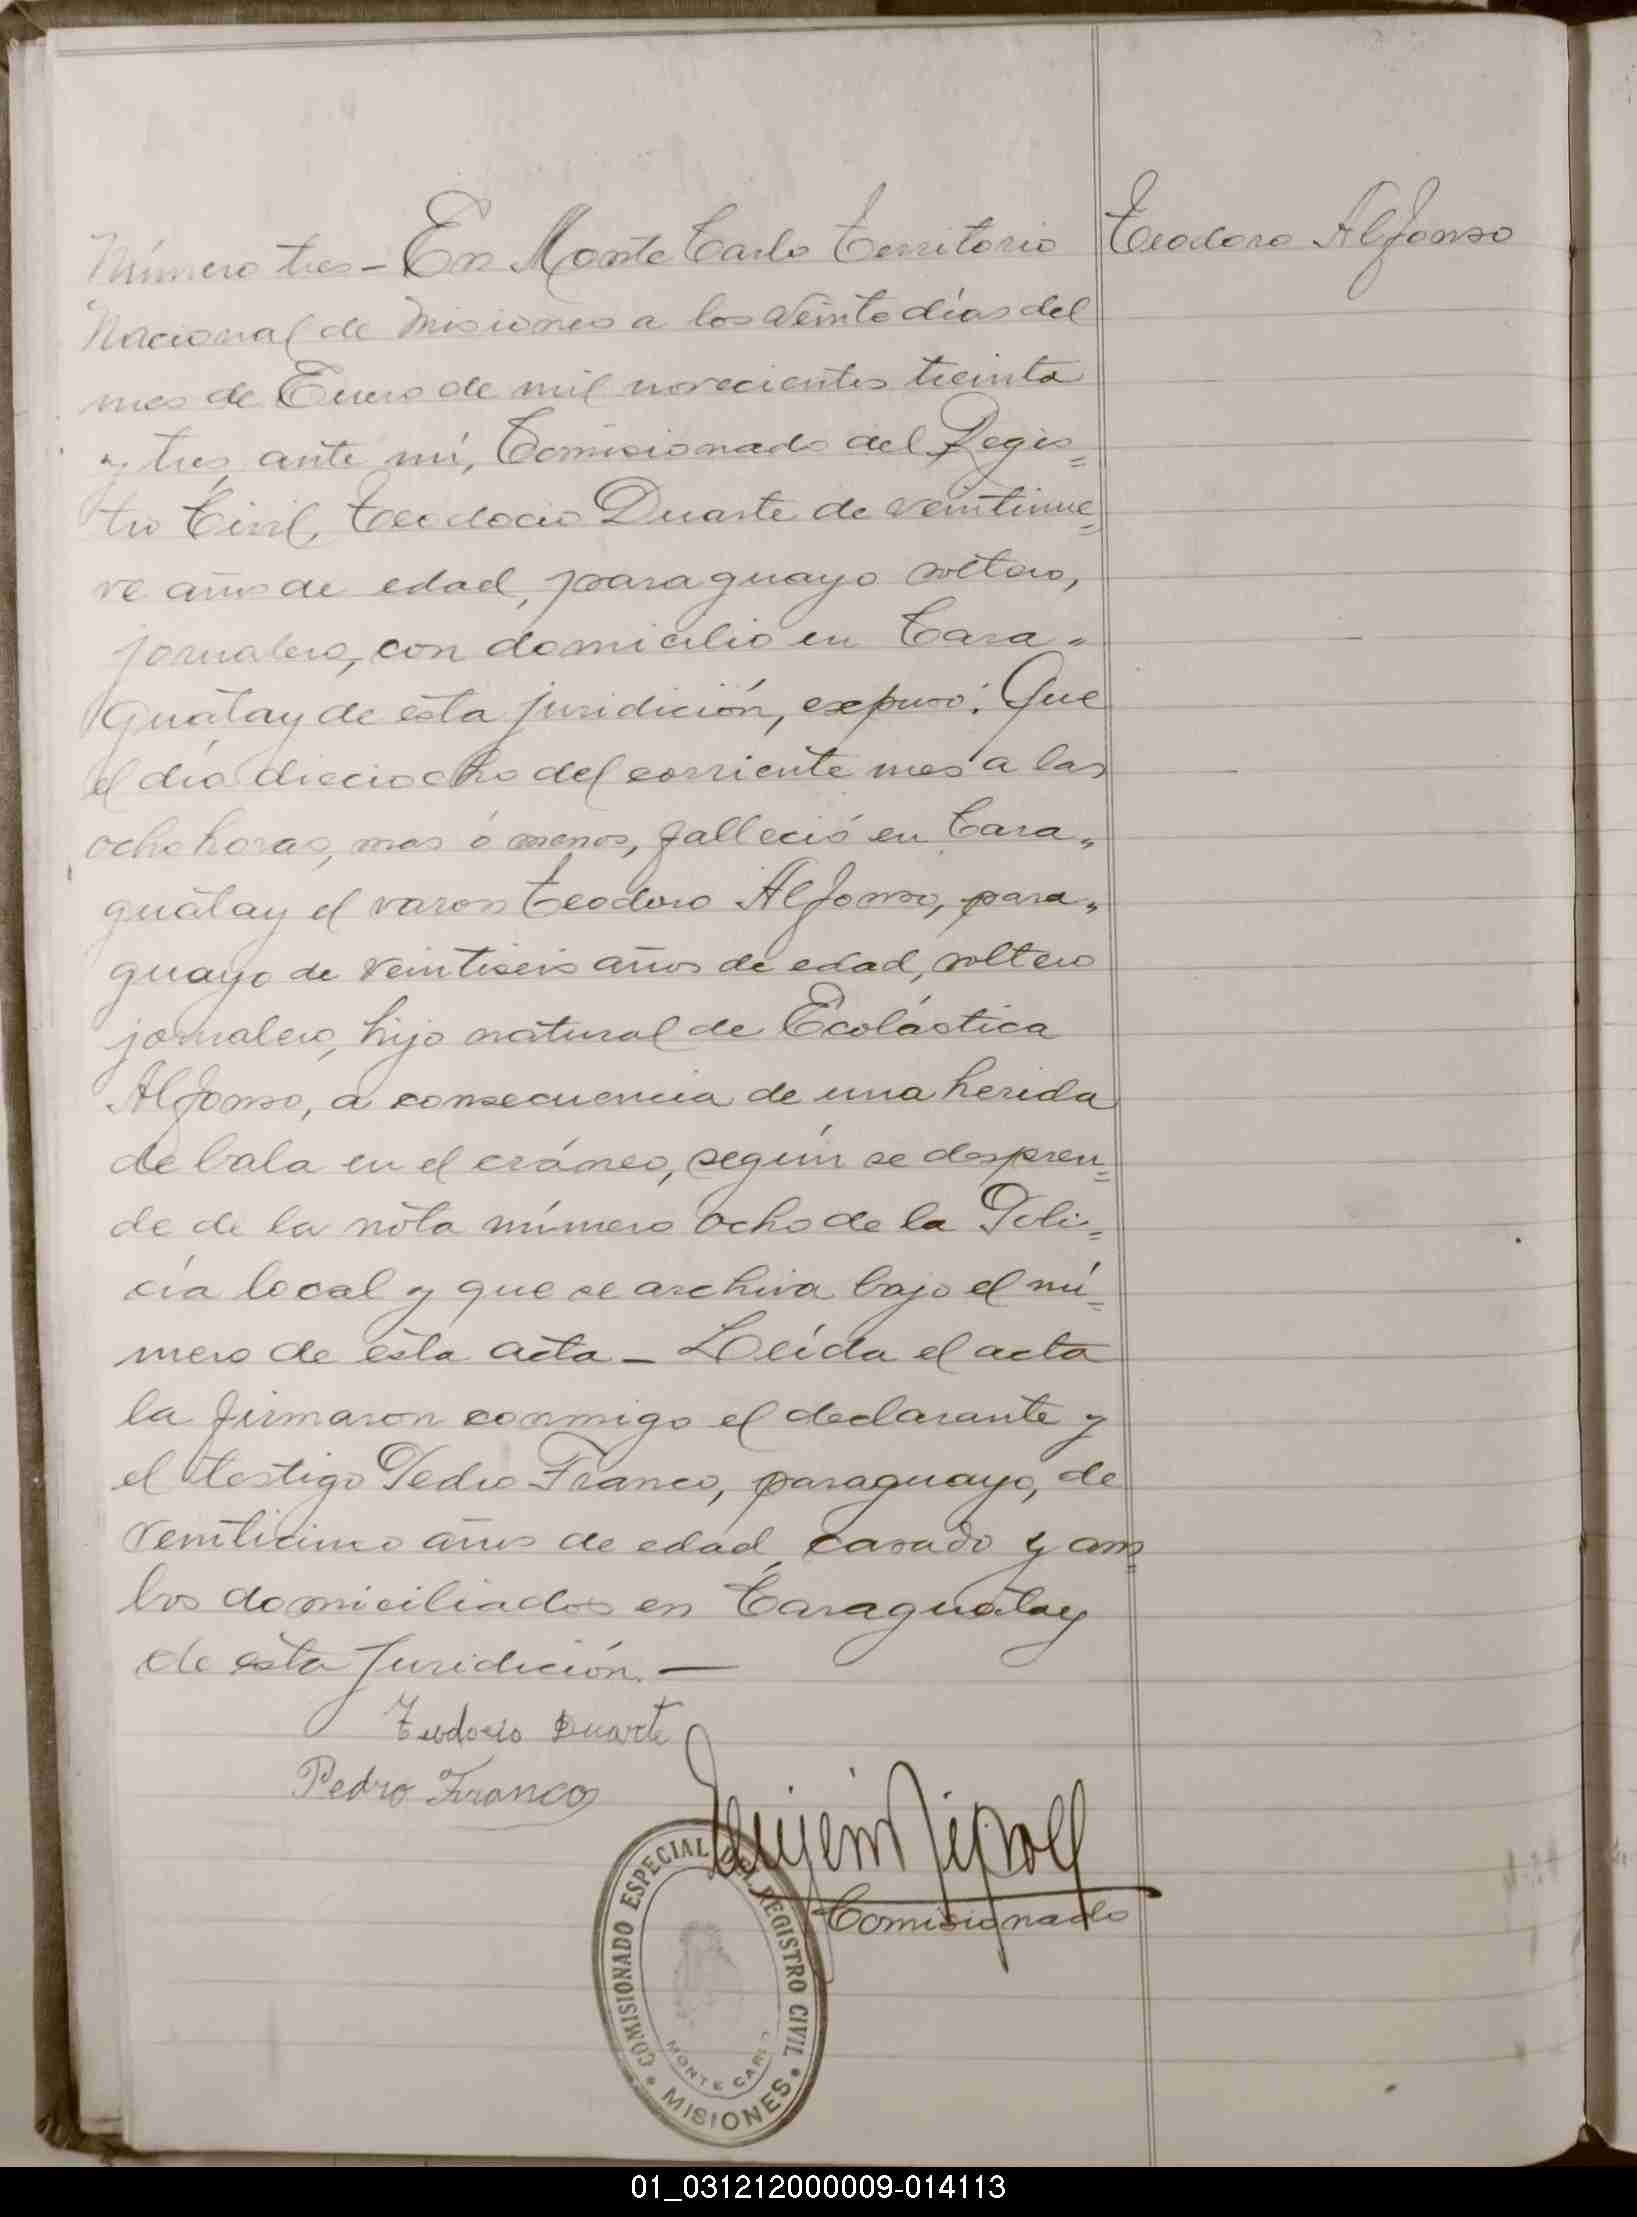 Teodoro Alfonso
Número tres – En Monte Carlo Territorio
Nacional de Misiones a los veinte días del
mes de Enero de mil novecientos treinta
y tres, ante mí, Comisionado del Regis=
tro Civil, Teodocio Duarte de veintinue=
ve años de edad, paraguayo soltero,
jornalero, con domicilio en Cara„
guatay de esta juridición, expuso: Que
el día dieciocho del corriente mes a las
ocho horas, mas ó menos, falleció en Cara„
guatay el varon Teodoro Alfonso, para„
guayo de veintiseis años de edad, soltero
jornalero, hijo natural de Ecolástica
Alfonso, a consecuencia de una herida
de bala en el cráneo, según se despren=
de de la nota número ocho de la Poli=
cía local y que se archiva bajo el nú=
mero de esta acta – Leída el acta
la firmaron conmigo el declarante y
el testigo Pedro Franco, paraguayo, de
veinticinco años de edad, casado y am=
bos domiciliados en Caraguatay
de esta Juridición. —
Teodocio Duarte
Pedro Franco
Comisionado
COMISIONADO ESPECIAL DEL REGISTRO CIVIL
MONTE CARLO
• MISIONES •
01_031212000009-014113